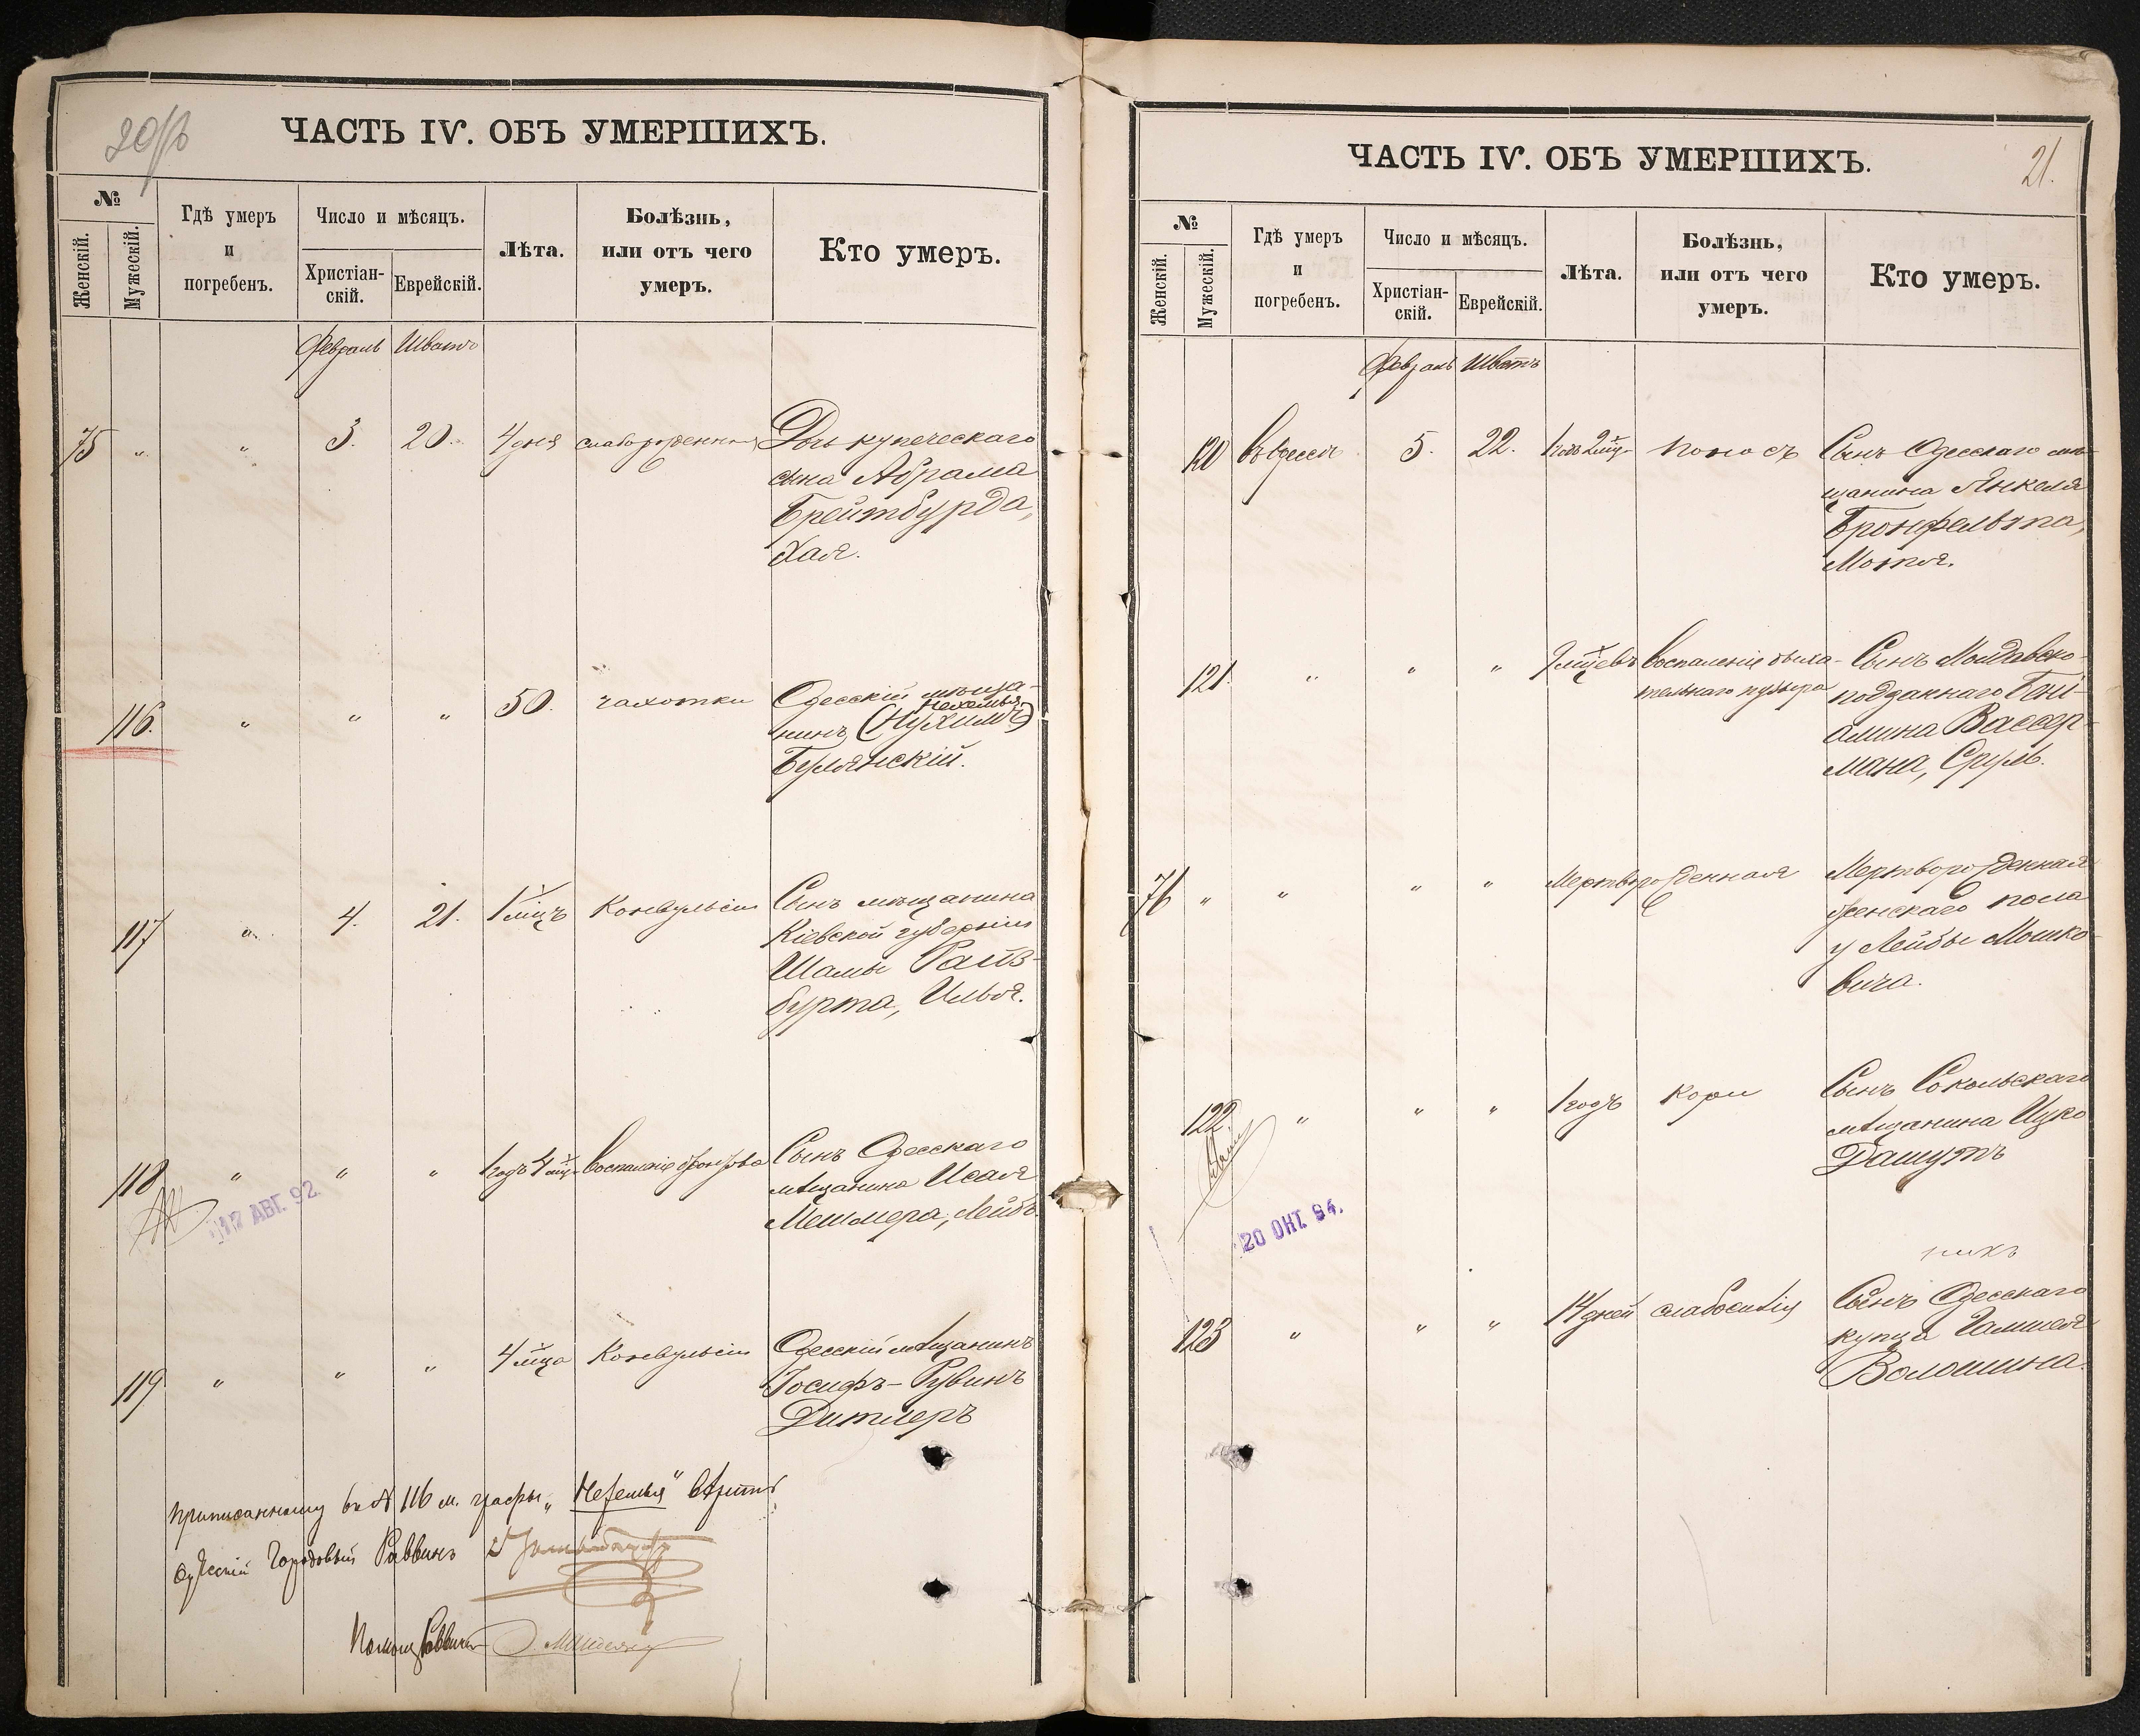 20об
ЧАСТЬ IV. ОБЪ УМЕРШИХЪ.
№
Женскій.
Мужескій.
Гдѣ умеръ
и
погребенъ.
Число и мѣсяцъ.
Христіан-
скій.
Еврейскій.
Лѣта.
Болѣзнь,
или отъ чего
умеръ.
Кто умеръ.
Февраль Шватъ
75 " " 3. 20. 4 дня слаборожденная Дочь купеческаго
сына Абрама
Брейтбурда,
Хая.
116. " " " 50. чахотки Одесскій мѣща-
Нехемья
нинъ (Нухимъ)
Булянскій.
117 " 4. 21. 1 мцъ Конвульсіи Сынъ мѣщанина
Кіевской губерніи
Шамы Райз-
бурта, Илья.
118 " " " 1 годъ 4 мц. воспаленіе бронховъ Сынъ Одесскаго
мѣщанина Исая
Мельмера, Лейбъ
17 АВГ. 92
119 " " " 4 мца Конвульсіи Одесскій мѣщанинъ
Іосифъ-Рувинъ
Дитмеръ
Приписанному въ № 116 м. графы „Нехемья" вѣрить
Одесскій Городовый Раввинъ
Помощ. Раввина
ЧАСТЬ IV. ОБЪ УМЕРШИХЪ.
21.
№
Женскій.
Мужескій.
Гдѣ умеръ
и
погребенъ.
Число и мѣсяцъ.
Христіан-
скій.
Еврейскій.
Лѣта.
Болѣзнь,
или отъ чего
умеръ.
Кто умеръ.
Февраль Шватъ
120 въ Одессѣ 5. 22. 1 годъ 2 мц. поносъ Сынъ Одесскаго мѣ-
щанина Янкеля
Бронфельта,
Мотя.
121. " " " 9 мцевъ Воспаленіе дыха- Сынъ Молдавско-
тельнаго пузыря подданнаго Бені-
амина Вассер-
мана, Сруль.
76 " " " " Мертворожденная Мертворожденная
женскаго пола
у Лейбы Мошко-
вича.
122. " " " 1 годъ Кори Сынъ Сокольскаго
мѣщанина Ицко
Дашутъ
20 ОКТ. 94.
123 " " " 14 дней слабосилія Сынъ Одесскаго
купца Гамшея
Волошина.